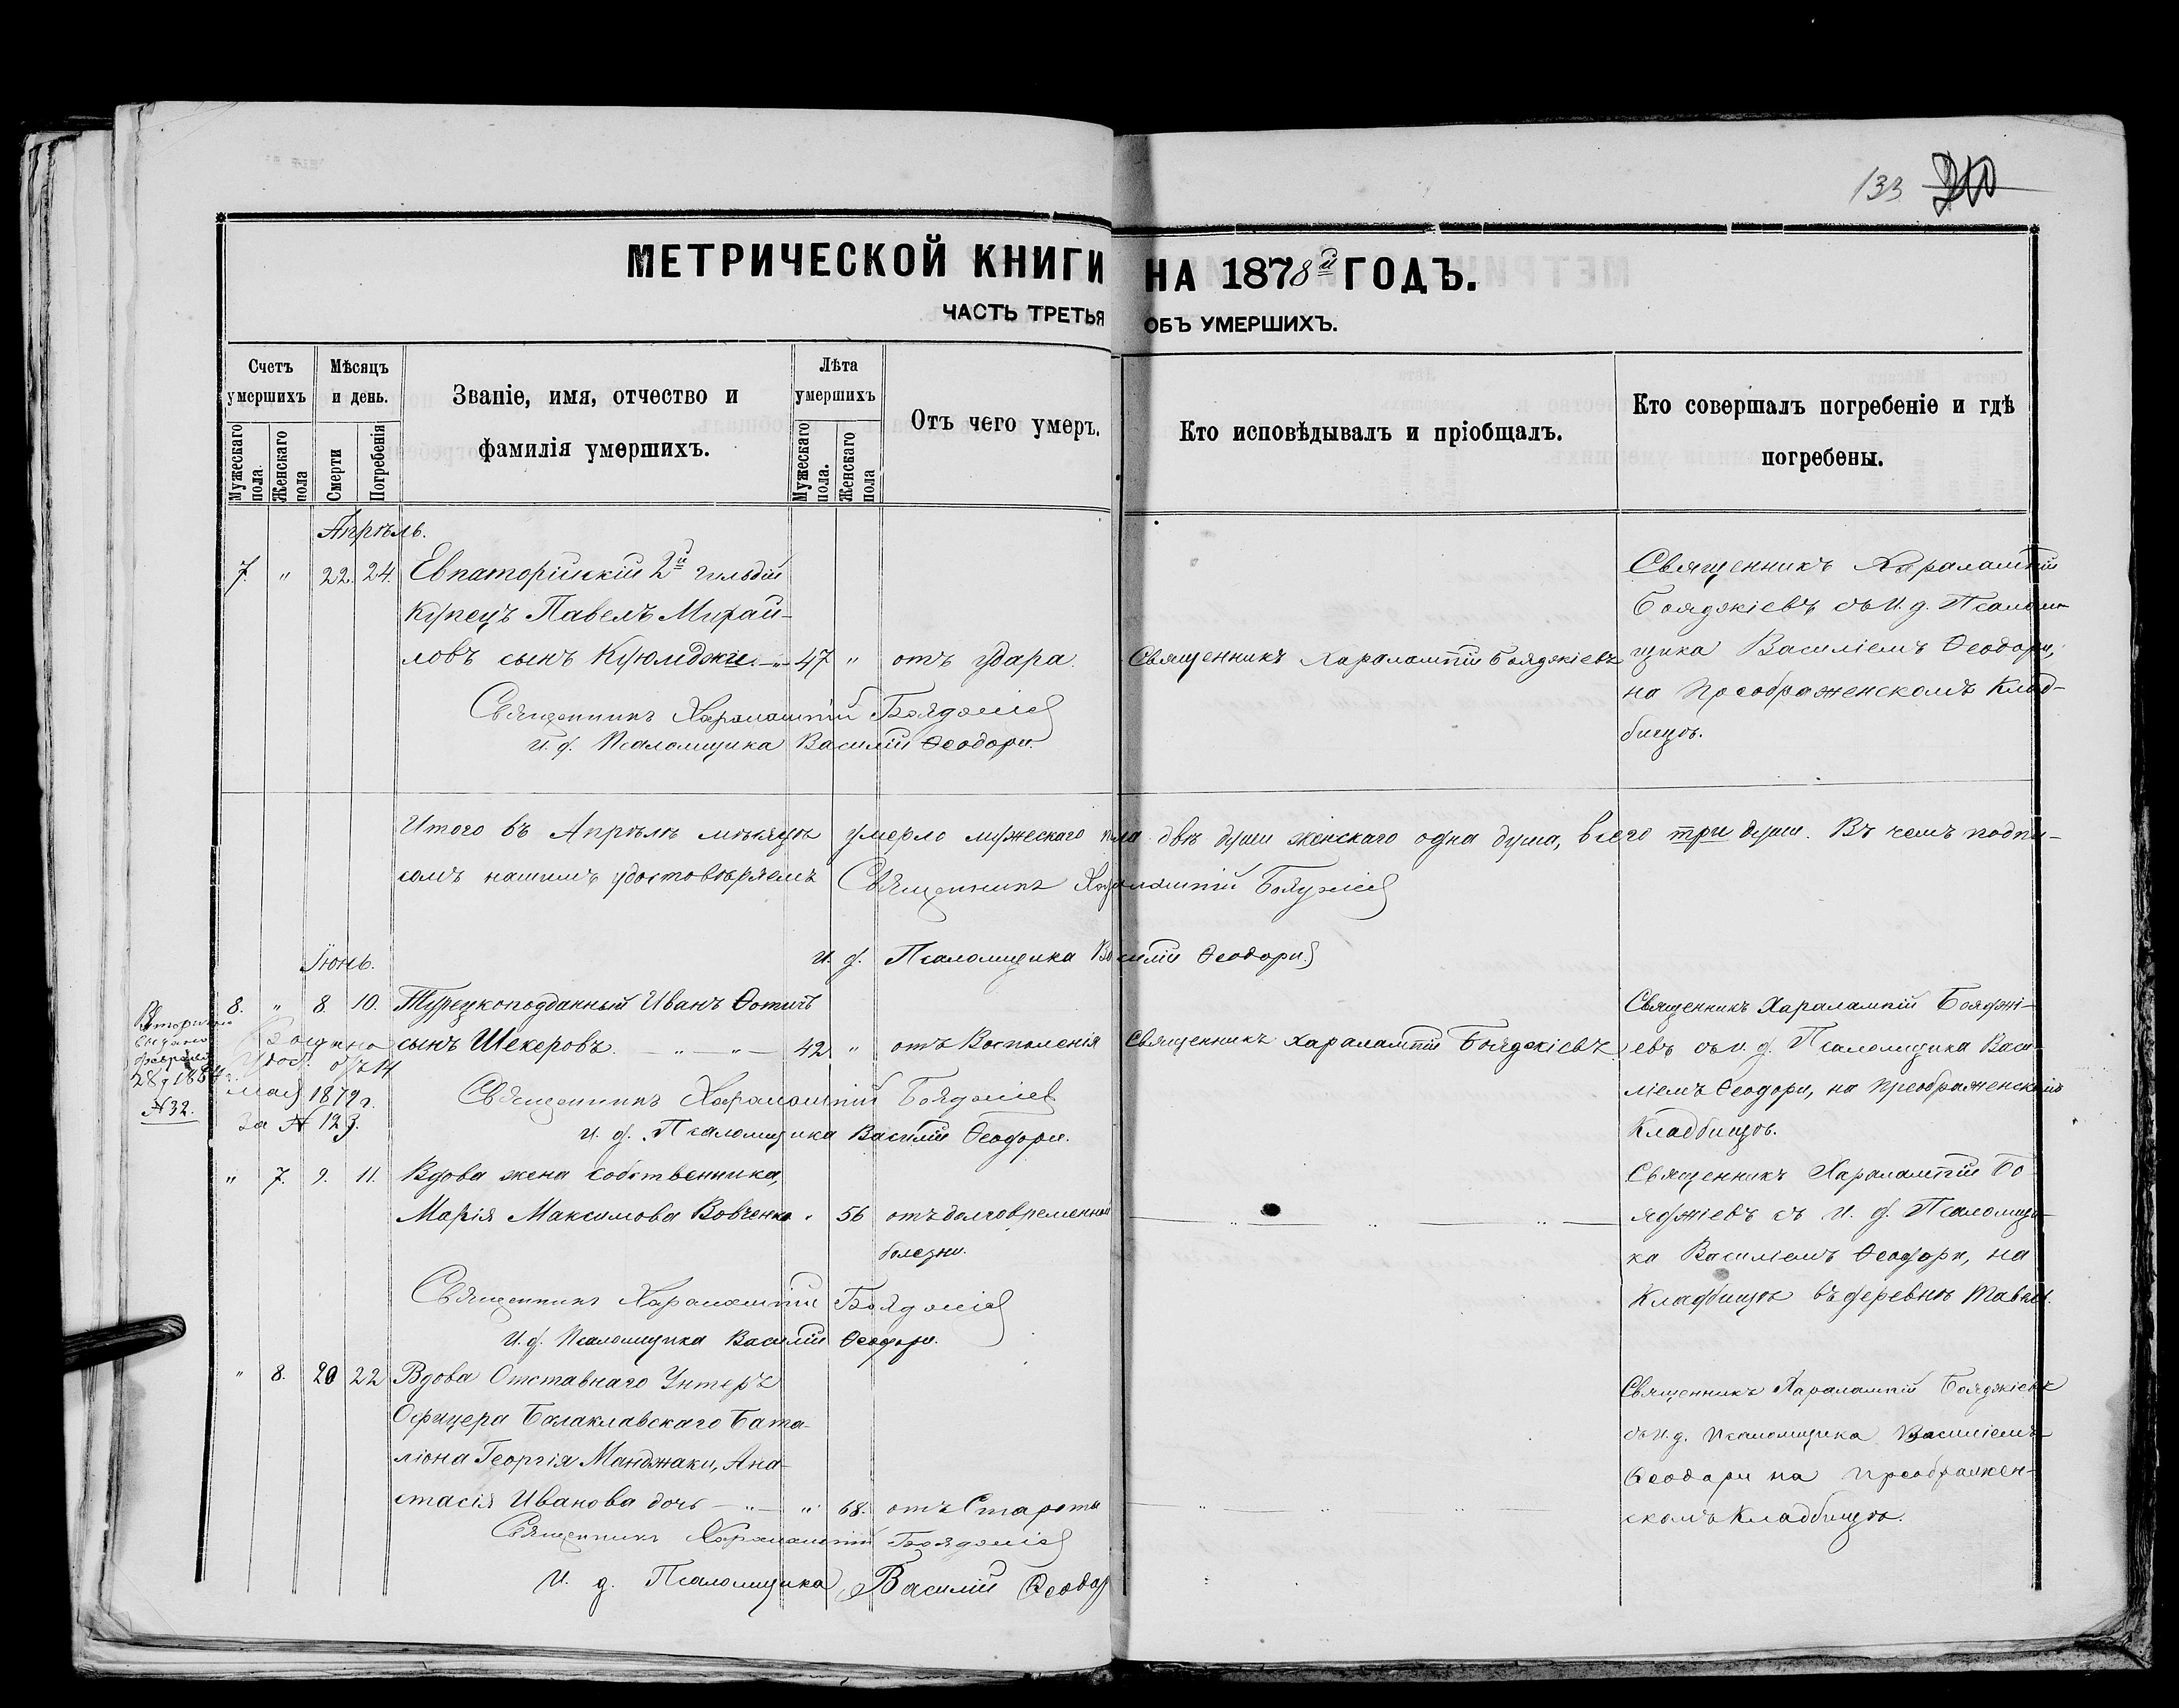 133 210
МЕТРИЧЕСКОЙ КНИГИ НА 1878й ГОДЪ.
ЧАСТЬ ТРЕТЬЯ ОБЪ УМЕРШИХЪ.
Счетъ умершихъ
Мужескаго пола.
Женскаго пола
Мѣсяцъ и день.
Смерти
Погребенія
Званіе, имя, отчество и
фамилія умершихъ.
Лѣта умершихъ
Мужескаго пола.
Женскаго пола
Отъ чего умеръ.
Кто исповѣдывалъ и пріобщалъ.
Кто совершалъ погребеніе и гдѣ
погребены.
Апрѣль.
7. " 22. 24. Евпаторійскій 2й гильдіи
Купецъ Павелъ Михаи-
ловъ сынъ Куюмджи 47 " отъ удара. Священникъ Харалампій Бояджіевъ
Священникъ Харалампій
Бояджіевъ съ И. д. Псалом-
щика Василіемъ Ѳеодори,
на Преображенскомъ Клад-
бищѣ.
Священникъ Харалампій Бояджіев
И. д. Псаломщика Василій Ѳеодори.
Итого въ Апрѣлѣ мѣсяцѣ умерло мужескаго пола двѣ души женскаго одна душа, всего три души. Въ чемъ подпи-
сомъ нашимъ удостовѣряемъ Священникъ Харалампій Бояджіев
И. д. Псаломщика Василій Ѳеодори
Іюнь.
8. " 8. 10. Турецкоподданный Иванъ Ѳотинъ
сынъ Шекеровъ 42 " отъ Воспаленія Священникъ Харалампій Бояджіевъ
Священникъ Харалампій Бояджі-
евъ съ и. д. Псаломщика Васи-
ліемъ Ѳеодори, на Преображенскомъ
Кладбищѣ.
Вторично
выдано
февраля
28 д 1884 г.
№ 32.
Выдано
Удост. отъ 14
мая 1879 г.
За № 123.
Священникъ Харалампій Бояджіев
и. д. Псаломщика Василій Ѳеодори.
" 7. 9. 11. Вдова жена собственника,
Марія Максимова Вовченко " 56 отъ долговременной
болезни.
Священникъ Харалампій Бо-
яджіевъ съ И. д. Псаломщи-
ка Василіемъ Ѳеодори, на
Кладбищѣ въ деревнѣ Тавкы.
Священникъ Харалампій Бояджіев
И. д. Псаломщика Василій Ѳеодори.
" 8. 20 22 Вдова Отставнаго Унтеръ
Офицера Балаклавскаго Бата-
ліона Георгія Манджаки, Ана-
стасія Иванова дочь " 68. отъ Старости
Священникъ Харалампій Бояджіевъ
съ И. д. Псаломщика Василіемъ
Ѳеодори на Преображен-
скомъ Кладбищѣ.
Священникъ Харалампій Бояджіев
И. д. Псаломщика Василій Ѳеодор